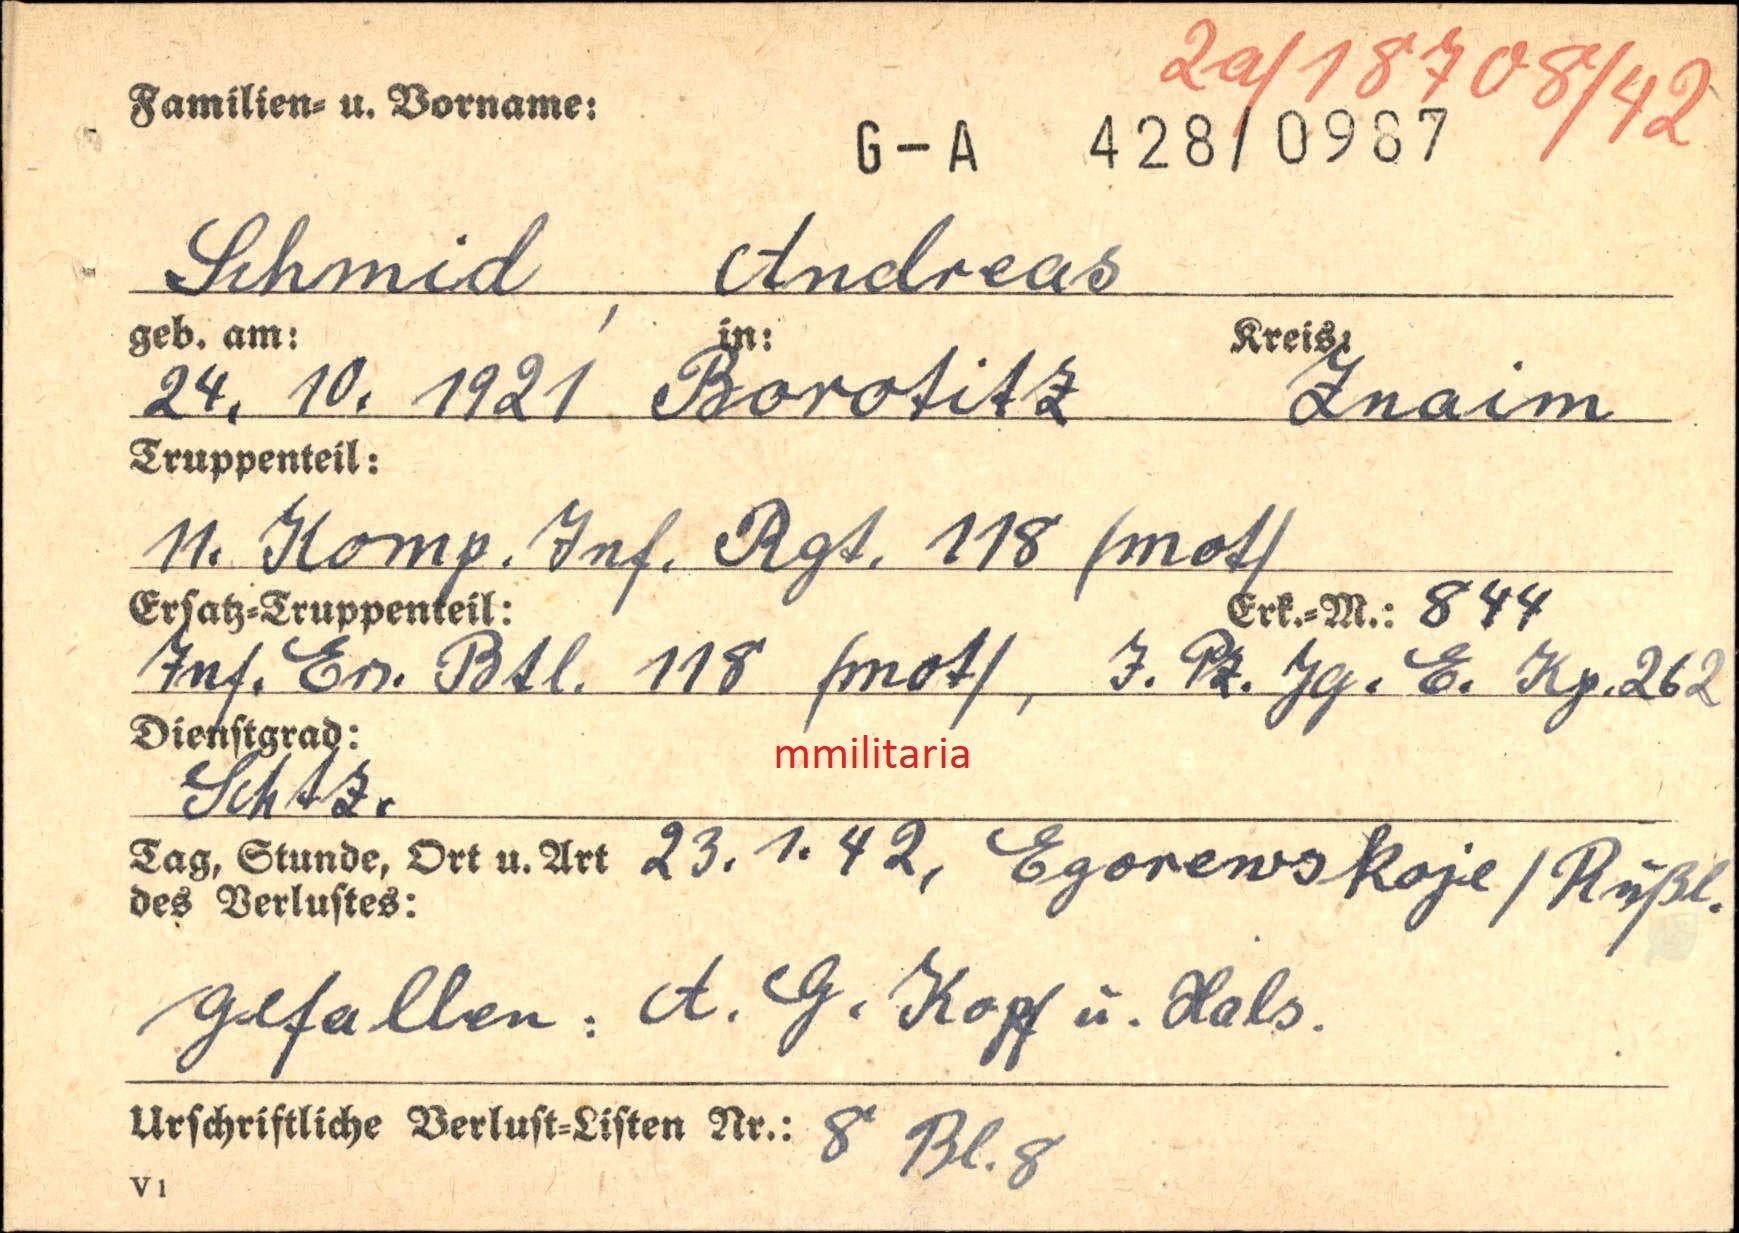 2a/18708/42
Familien- u. Vorname:
G-A 428/0987
Schmid, Andreas
geb. am: in: Kreis:
24. 10. 1921 Borotitz Znaim
Truppenteil:
11. Komp. Inf. Rgt. 118 /mot/
Ersatz-Truppenteil: Erk.-M.: 844
Inf. Ers. Btl. 118 /mot/, I. Pz. Jg. E. Kp. 262
Dienstgrad:
mmilitaria
Schtz.
Tag, Stunde, Ort u. Art 23. 1. 42, Egorewskoje / Rußl.
des Verlustes:
gefallen: A. G. Kopf u. Hals.
Urschriftliche Verlust-Listen Nr.: 8 Bl. 8
V 1